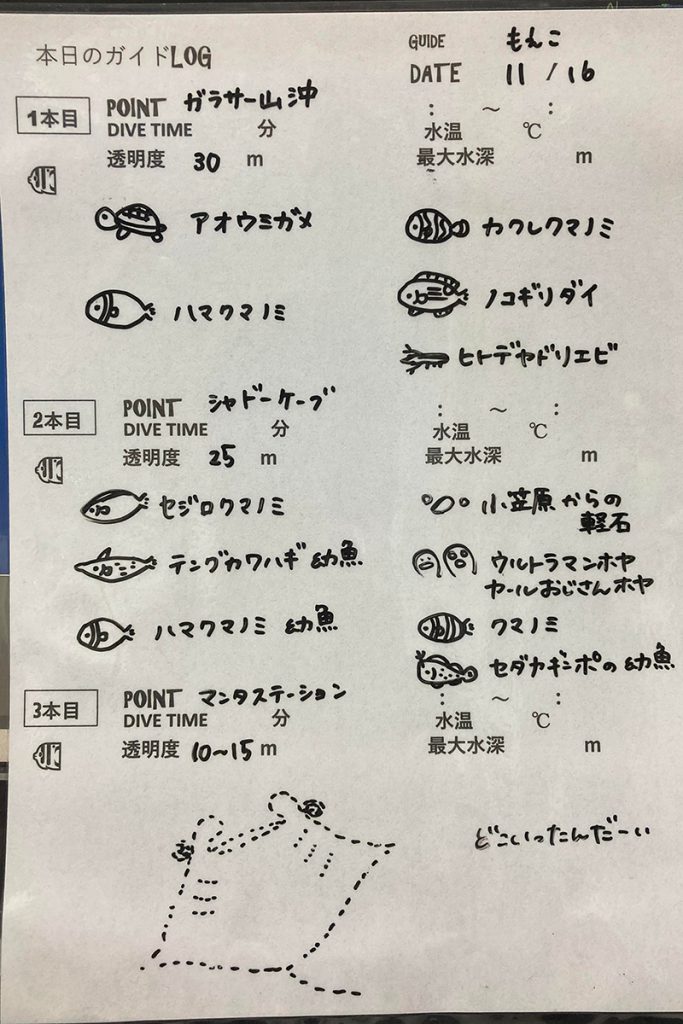 本日のガイドLOG
GUIDE もんこ
DATE 11 / 16
1本目
POINT ガラサー山沖
DIVE TIME 分
透明度 30 m
: ～ :
水温 ℃
最大水深 m
アオウミガメ
カクレクマノミ
ハマクマノミ
ノコギリダイ
ヒトデヤドリエビ
2本目
POINT シャドーケーブ
DIVE TIME 分
透明度 25 m
: ～ :
水温 ℃
最大水深 m
セジロクマノミ
小笠原からの
軽石
テングカワハギ 幼魚
ウルトラマンホヤ
カールおじさんホヤ
ハマクマノミ 幼魚
クマノミ
セダカギンポの幼魚
3本目
POINT マンタステーション
DIVE TIME 分
透明度 10～15 m
: ～ :
水温 ℃
最大水深 m
どこいったんだーい